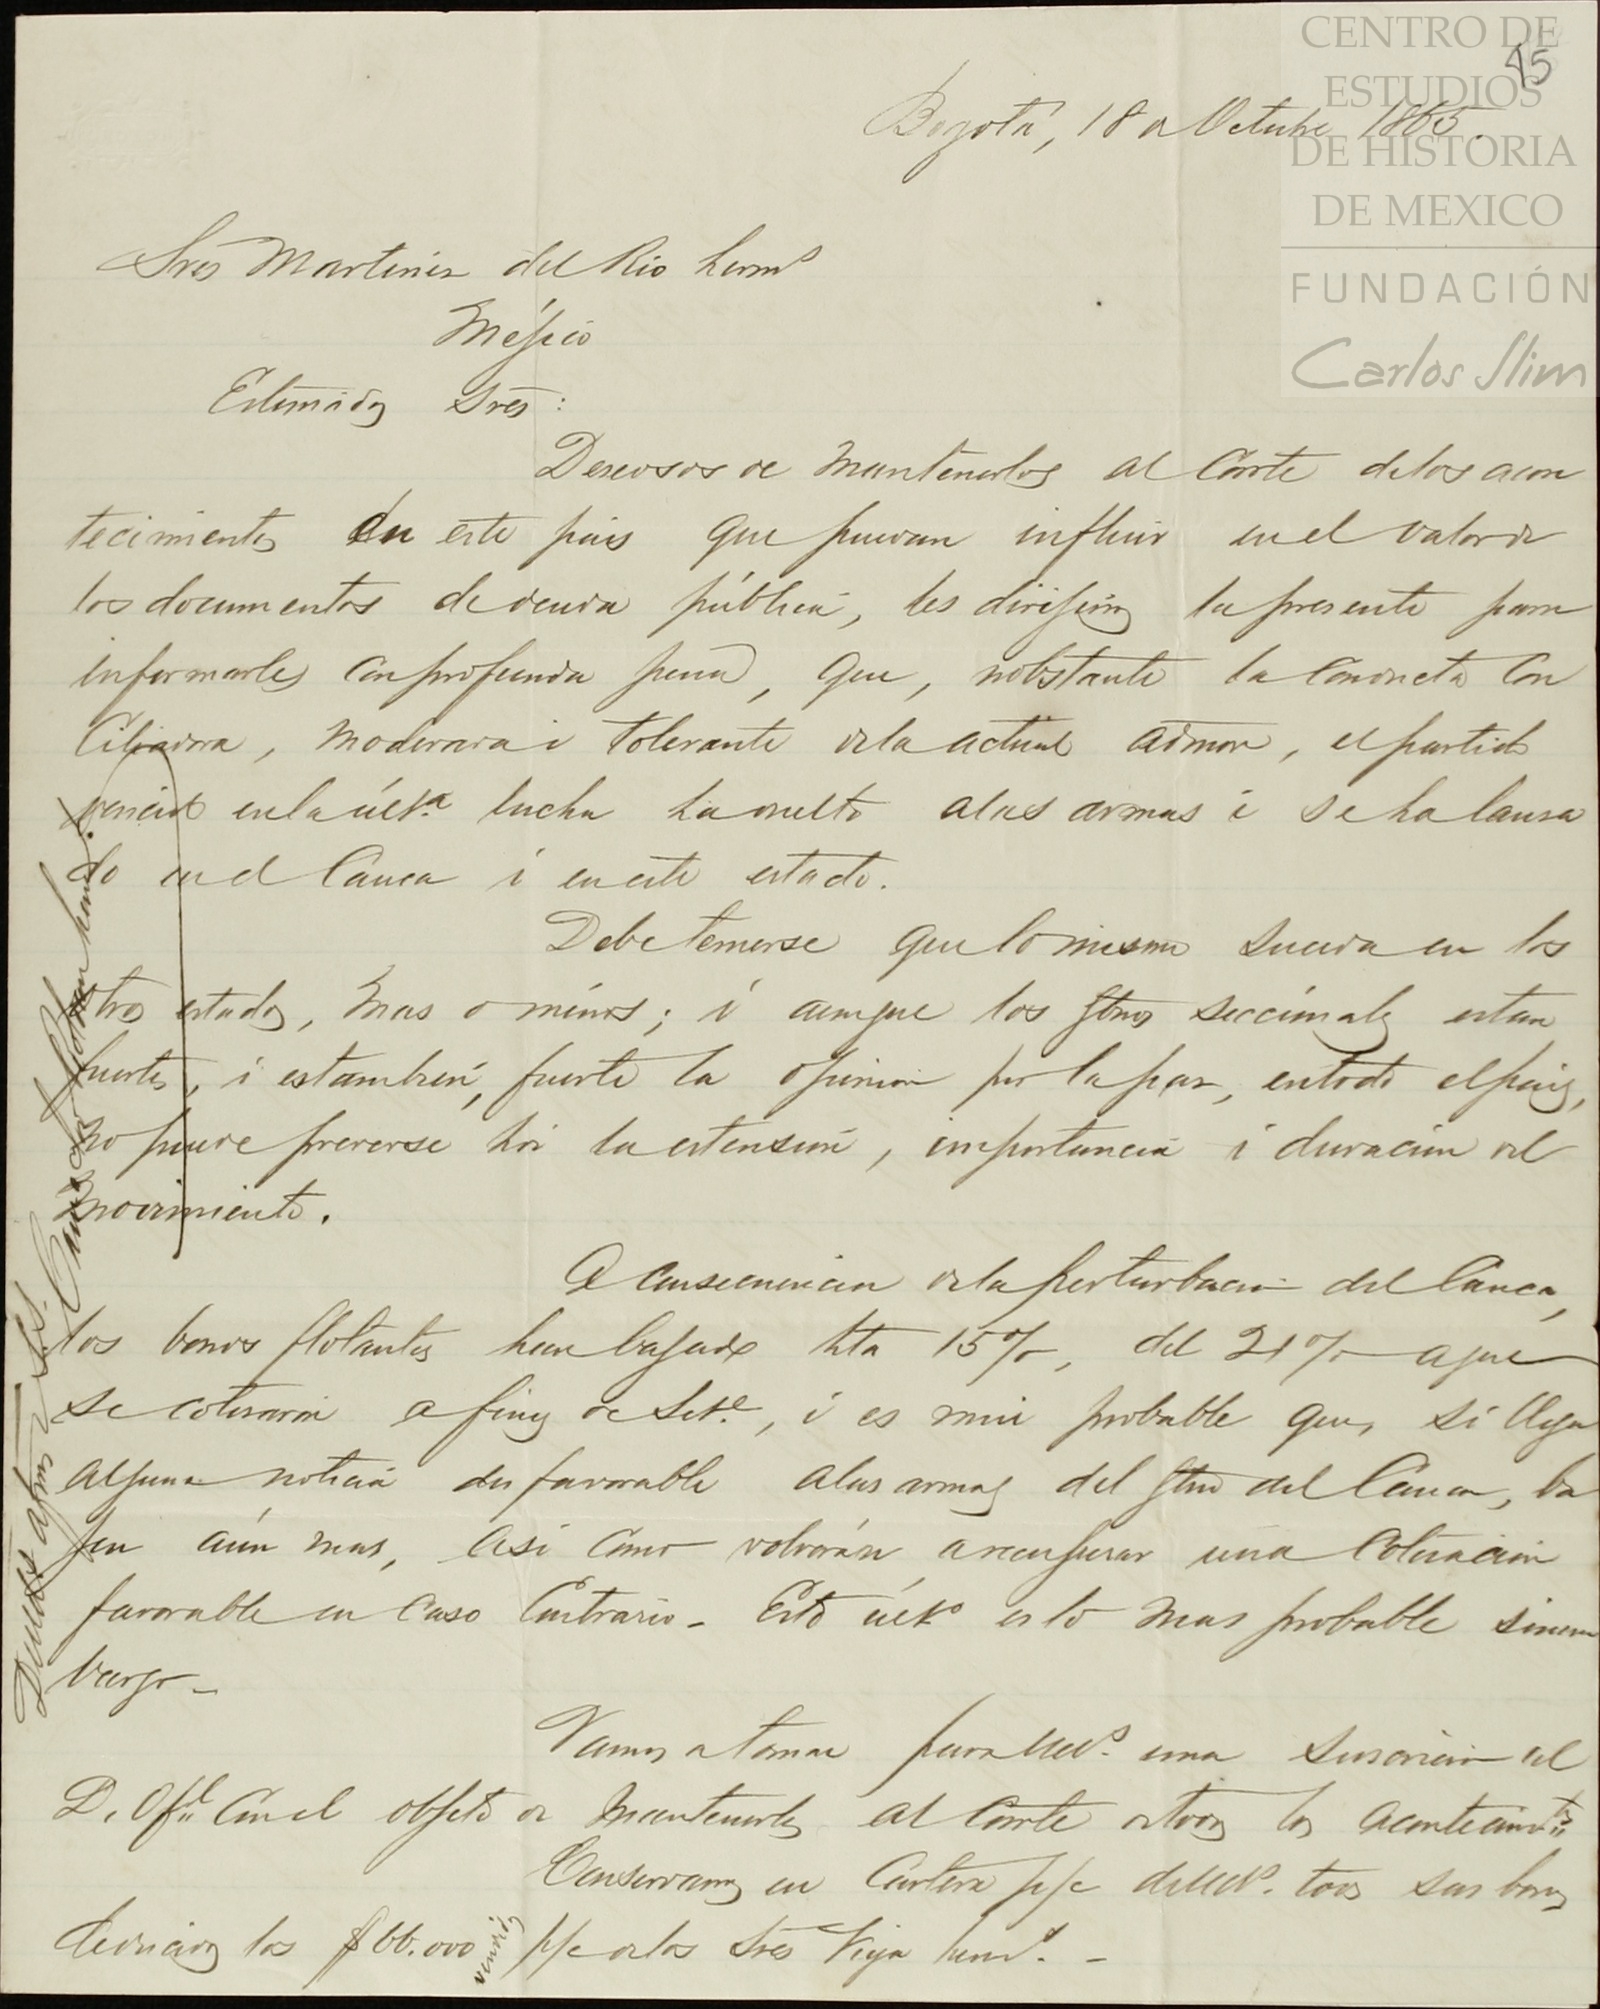 CENTRO DE
ESTUDIOS
DE HISTORIA
DE MEXICO
FUNDACIÓN
Carlos Slim
Bogotá, 18 de Octubre 1865.
Sres Martinez del Rio herms
Méjico
Estimados Sres:
Deseosos de mantenerlos al corte de los acon
tecimientos en este pais que puedan influir en el valor de
los documentos de deuda pública, les dirijimos la presente para
informarles con profunda pena, que, nobstante la conducta con
ciliadora, moderada i tolerante de la actual admon, el partido
vencido en la últa. lucha ha vuelto a las armas i se ha lanza
do en el Cauca i en este estado.
Debe temerse que lo mismo suceda en los
otros estados, mas o ménos; i aunque los gbnos seccionales estan
fuertes, i es tambien, fuerte la opinion por la paz, en todo el pais,
no puede preverse hoi la estension, importancia i duracion del
movimiento.
A consecuencia de la perturbacion del Cauca,
los bonos flotantes han bajado hta 15%, del 21% a que
se cotizaron a fines de Sete., i es mui probable que, si llega
alguna noticia desfavorable a las armas del gbno del Cauca, ba
jen aún mas, asi como volverán a recuperar una cotizacion
favorable en caso contrario - Esto últo es lo mas probable sinem
bargo -
Vamos a tomar para Uds. una suscricion del
D. Ofl. con el objeto de mantenerles al corte de todos los acontecimtos.
Conservamos en cartera p/c de Uds. todos sus bonos
deducidos los $66.000 vendidos p/c de los Sres Vieja herms. -